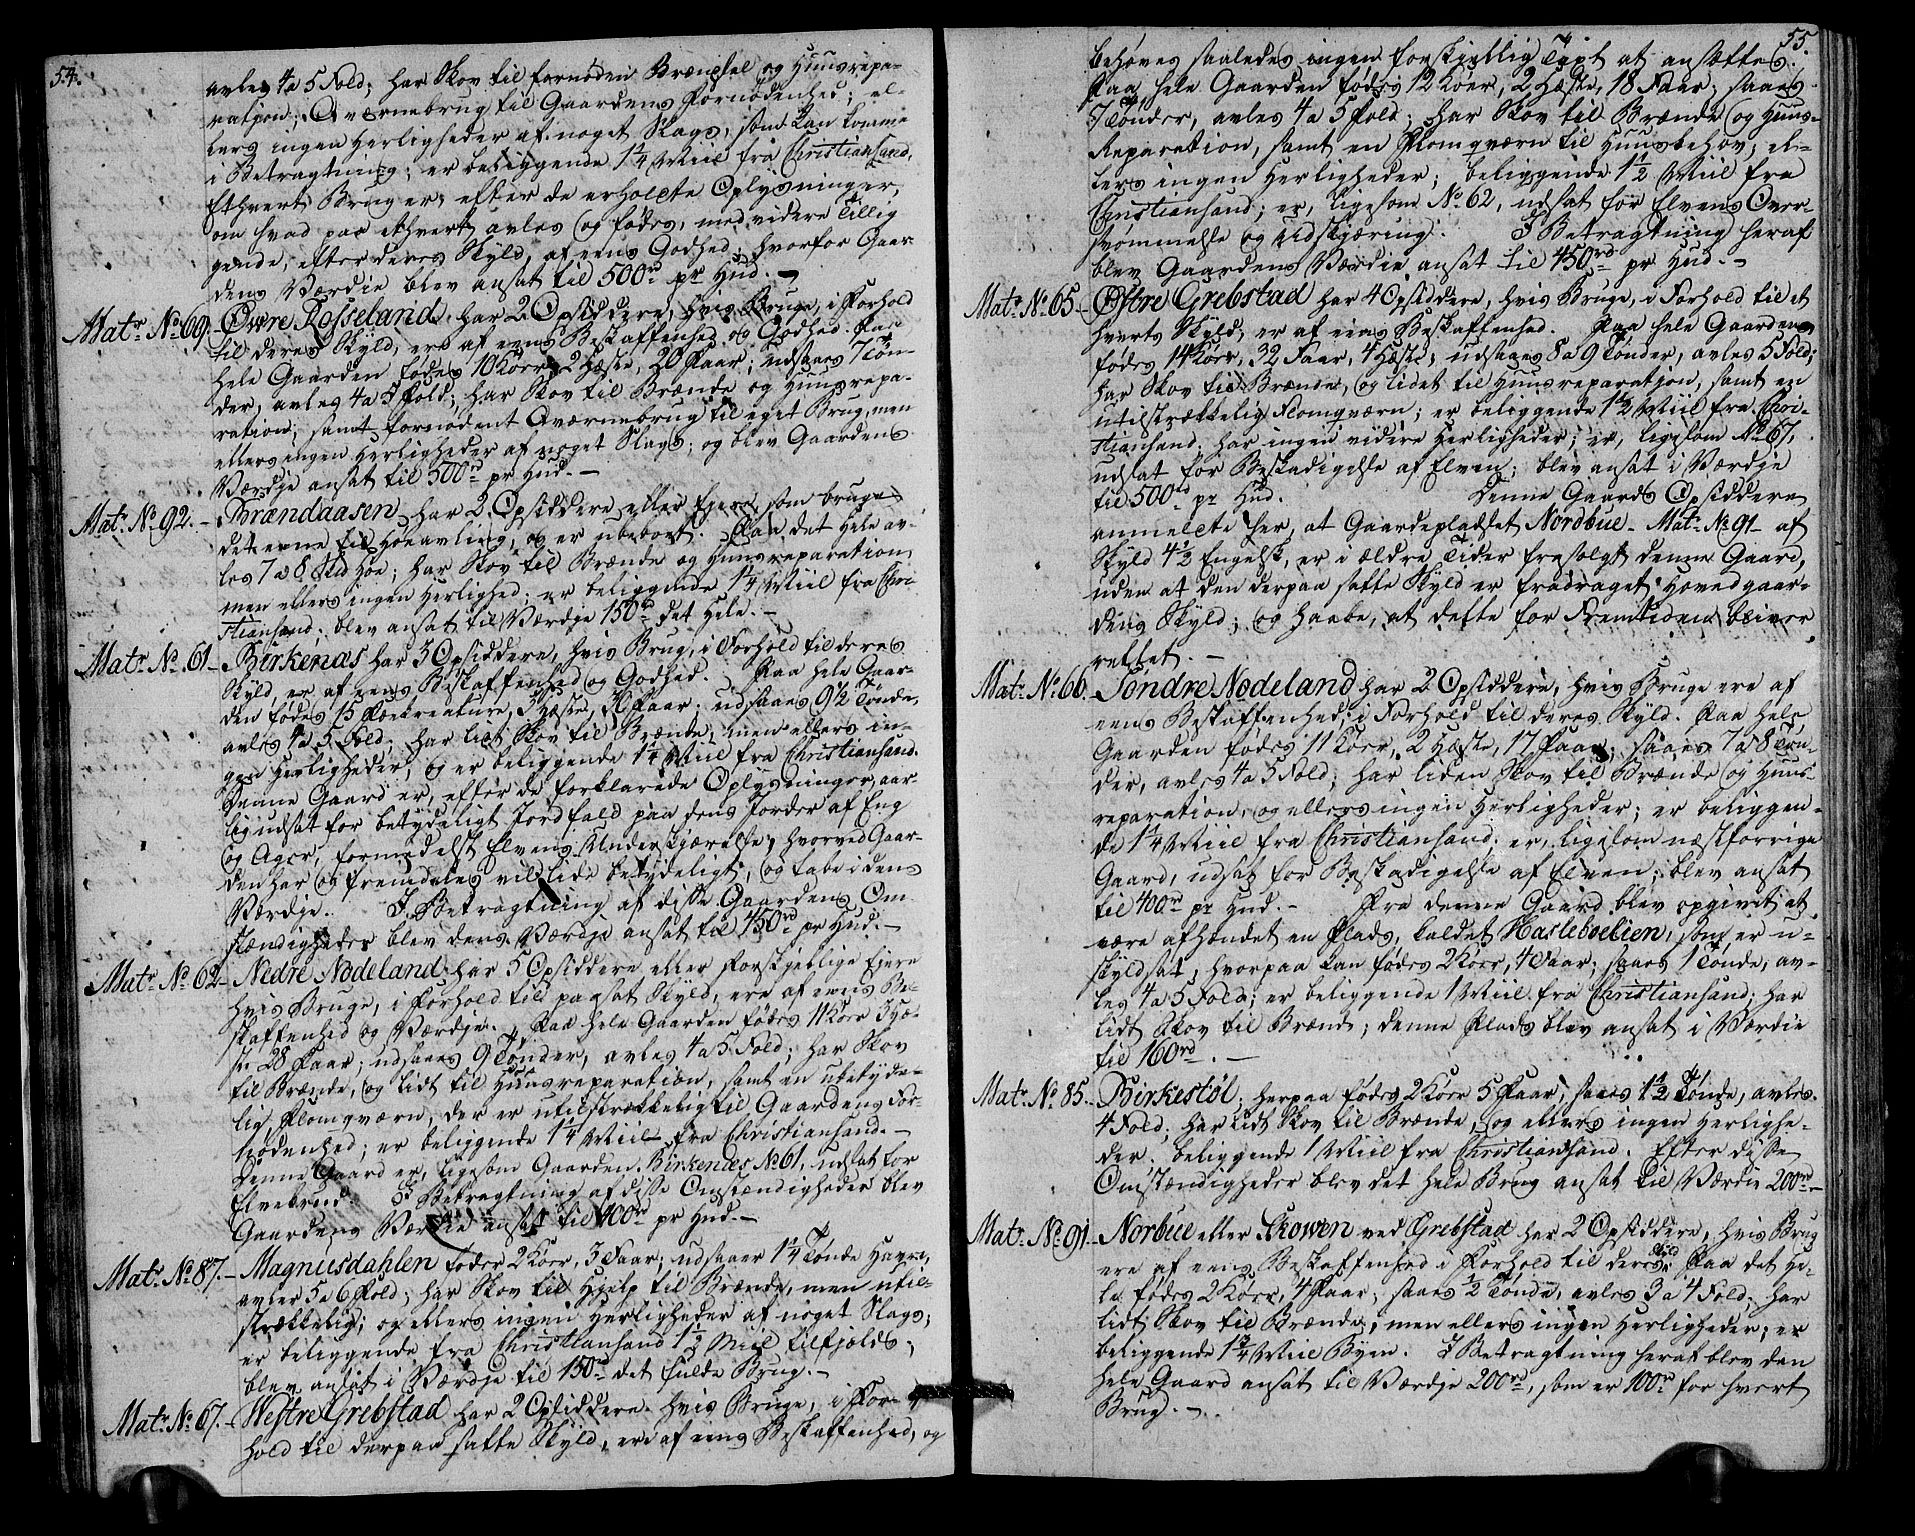 54.
avles 4 a 5 Fold; har Skov til fornøden Brændsel og Huusrepa-
ration; Qværnebrug til Gaardens Fornødenhed; el-
lers ingen Herligheder af noget Slags, som kan komme
i Betragtning; er beliggende 1 1/4 Miil fra Christiansand.
Ethvert Brug er, efter de erholdte Oplysninger,
om hvad paa ethvert avles og fødes, med videre Tillig
gende, efter deres Skyld, af eens Godhed; hvorfor Gaar
dens Værdie blev ansat til 500rd pr Hud. -
Matr. No. 69. - Øvre Rosseland har 2 Opsiddere, hvis Bruge, i Forhold
til deres Skyld, ere af eens Beskaffenhed og Godhed. Paa
hele Gaarden fødes 10 Køer, 2 Hæste, 20 Faar; udsaaes 7 Tøn-
der, avles 4 a 5 Fold; har Skov til Brænde og Huusrepa-
ration, samt fornødent Qværnebrug til eget Brug, men
ellers ingen Herligheder af noget Slags; og blev Gaardens
Værdje ansat til 500rd pr Hud. -
Matr. No. 92. - Brændaasen har 2 Opsiddere eller Ejere, som bruge
det eene til Høeavling, og er ubeboet. Paa det Hele av-
les 7 a 8 Høe; har Skov til Brænde og Huusreparation,
men ellers ingen Herlighed; er beliggende 1 1/4 Miil fra Chri
stiansand. blev ansat til Værdje 150rd det Hele. -
Matr. No. 61 - Birkenæs har 3 Opsiddere, hvis Brug, i Forhold til deres
Skyld, er af eens Beskaffenhed og Godhed. Paa hele Gaar-
den fødes 15 Fækreature, 3 Hæste, 30 Faar; udsaaes 9 1/2 Tønde,
avles 4 a 5 Fold; har lidt Skov til Brænde, men ellers in-
gen Herligheder, og er beliggende 1 1/4 Miil fra Christiansand.
Denne Gaard er, efter de forklarede Oplysninger, aar
lig udsat for betydeligt Jordfald paa dens Jorder af Eng
og Ager, formedelst Elvens Underskjærelse, hvorved Gaar-
den har og fremdeles vil lide betydeligt, og tabe i dens
Værdje. I Betragtning af disse Gaardens Om
stændigheder blev dens Værdje ansat til 450rd pr Hud. -
Matr. No. 62 - Nedre Nodeland har 5 Opsiddere eller forskjellige Ejere
hvis Bruge, i Forhold til paasat Skyld, ere af eens Be-
skaffenhed og Værdje. Paa hele Gaarden fødes 11 Køer 3 Hæ-
ste 28 Faar; udsaaes 9 Tønder, avles 4 a 5 Fold; har Skov
til Brænde, og lidt til Huusreparation, samt en ubetyde-
lig Flomqværn, der er utilstrækkelig til Gaardens For-
nødenhed; er beliggende 1 1/4 Miil fra Christiansand. -
Denne Gaard er, ligesom Gaarden Birkenæs No. 61, udsat for
Elvebrud. I Betragtning af disse Omstændigheder blev
Gaardens Værdie ansat til 400rd pr Hud. -
Matr. No. 87. - Magnusdahlen føder 2 Køer, 3 Faar; udsaaer 1 1/4 Tønde Havre,
avler 5 a 6 Fold; har Skov til Hjelp til Brænde, men util-
strækkelig; og ellers ingen Herligheder af noget Slags;
er beliggende fra Christiansand 1 1/2 Miil tilfjelds;
blev ansat i Værdje til 150rd det fulde Brug. -
Matr. No. 67. - Westre Grebstad har 2 Opsiddere, hvis Bruge, i For-
hold til derpaa satte Skyld, ere af eens Beskaffenhed, og
55.
behøves saaledes ingen forskjellig Taxt at ansættes.
Paa hele Gaarden fødes 12 Køer, 2 Hæste, 18 Faar; saaes
7 Tønder, avles 4 a 5 Fold; har Skov til Brænde og Huus-
Reparation, samt en Flomqværn til Huusbehov; el-
lers ingen Herligheder; beliggende 1 1/2 Miil fra
Christiansand; er, ligesom No. 62, udsat for Elvens Over-
svømmelse og Udskjæring. I Betragtning heraf
blev Gaardens Værdie ansat til 450rd pr Hud. -
Matr. No. 65 - Østre Grebstad har 4 Opsiddere, hvis Bruge, i Forhold til et
hverts Skyld, er af eens Beskaffenhed. Paa hele Gaarden
fødes 14 Køer, 32 Faar, 4 Hæste; udsaaes 8 a 9 Tønder, avles 5 Fold;
har Skov til Brænde, og lidet til Huusreparation, samt en
utilstrækkelig Flomqværn; er beliggende 1 1/2 Miil fra Chri-
stiansand. har ingen videre Herligheder; er, ligesom No. 67,
udsat for Beskadigelse af Elven; blev ansat i Værdje
til 500rd pr Hud. Denne Gaards Opsiddere
anmeldte her, at Gaardepladset Nordbue - Matr. No. 91 - af
Skyld 4 1/2 Engelsk, er i ældre Tider frasolgt denne Gaard,
uden at den derpaa satte Skyld er fradraget Hovedgaar-
dens Skyld; og haabe, at dette for Fremtiden bliver
rettet. -
Matr. No. 66. Søndre Nodeland har 2 Opsiddere, hvis Bruge ere af
eens Beskaffenhed, i Forhold til deres Skyld. Paa hele
Gaarden fødes 11 Køer, 2 Hæste, 17 Faar; saaes 7 a 8 Tøn-
der, avles 4 a 5 Fold; har liden Skov til Brænde og Huus-
reparation, og ellers ingen Herligheder; er beliggen-
de 1 1/4 Miil fra Christiansand; er, ligesom næstforrige
Gaard, udsat for Beskadigelse af Elven; blev ansat
til 400rd pr Hud. - Fra denne Gaard blev opgivet at
være afhændet en Plads, kaldet Hasleboelien, som er u-
skyldsat, hvorpaa kan fødes 2 Køer, 4 Faar; saaes 1 Tønde, av-
les 4 a 5 Fold; er beliggende 1 Miil fra Christiansand; har
lidt Skov til Brænde; denne Plads blev ansat i Værdie
til 160rd. -
Matr. No. 85. Birkestøl, herpaa fødes 2 Køer 5 Faar, saaes 1 1/2 Tønde, avles
4 Fold; har lidt Skov til Brænde, og ellers ingen Herlighe-
der. beliggende 1 Miil fra Christiansand. Efter disse
Omstændigheder blev det hele Brug ansat til Værdie 200rd -
Matr. No. 91. - Norbue eller Skowen ved Grebstad har 2 Opsiddere, hvis Brug
ere af eens Beskaffenhed i Forhold til deres Skyld. Paa det He-
le fødes 2 Køer, 4 Faar; saaes 1/2 Tønde, avles 3 a 4 Fold; har
lidt Skov til Brænde, men ellers ingen Herligheder; er
beliggende 1 3/4 Miil Byen. I Betragtning heraf blev den
hele Gaard ansat til Værdje 200rd, som er 100rd for hvert
Brug. -